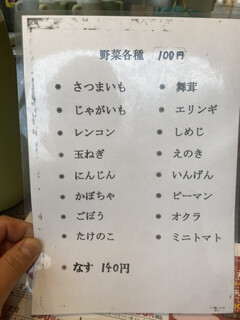 野菜各種 100円
● さつまいも ● 舞茸
● じゃがいも ● エリンギ
● レンコン ● しめじ
● 玉ねぎ ● えのき
● にんじん ● いんげん
● かぼちゃ ● ピーマン
● ごぼう ● オクラ
● たけのこ ● ミニトマト
● なす 140円